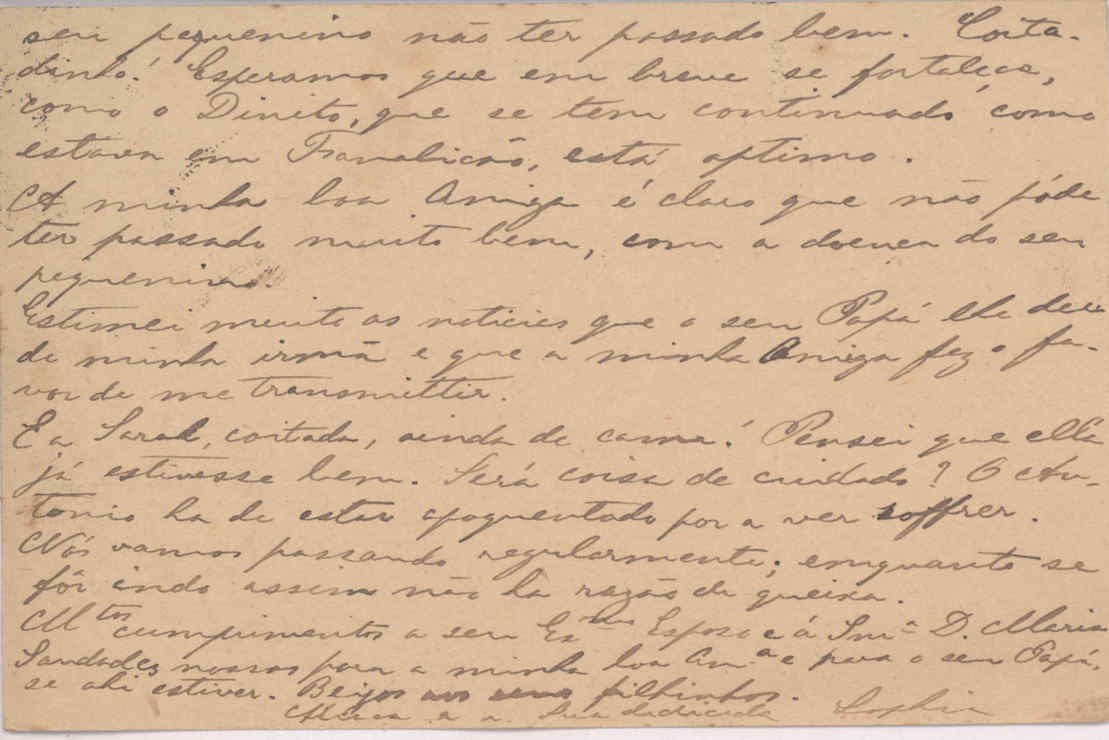 seu pequenino não ter passado bem. Coita-
dinho! Esperamos que em breve se fortaleça,
como o Dinito, que se tem continuado como
estava em Famalicão, está optimo.
A minha boa Amiga é claro que não póde
ter passado muito bem, com a doença do seu
pequenino.
Estimei muito as noticias que o seu Papá lhe deu
de minha irmã e que a minha Amiga fez o fa-
vor de me transmittir.
E a Sarah, coitada, ainda de cama! Pensei que ella
já estivesse bem. Será coisa de cuidado? O An-
tonio ha de estar apoquentado por a ver soffrer.
Nós vamos passando regularmente; emquanto se
fôr indo assim não ha razão de queixa.
Mtos cumprimentos a seu Exmo Esposo e á Snrª D. Maria
Saudades nossas para a minha boa Amª e para o seu Papá,
se ahi estiver. Beijos aos seus filhinhos.
sua dedicada Sophia